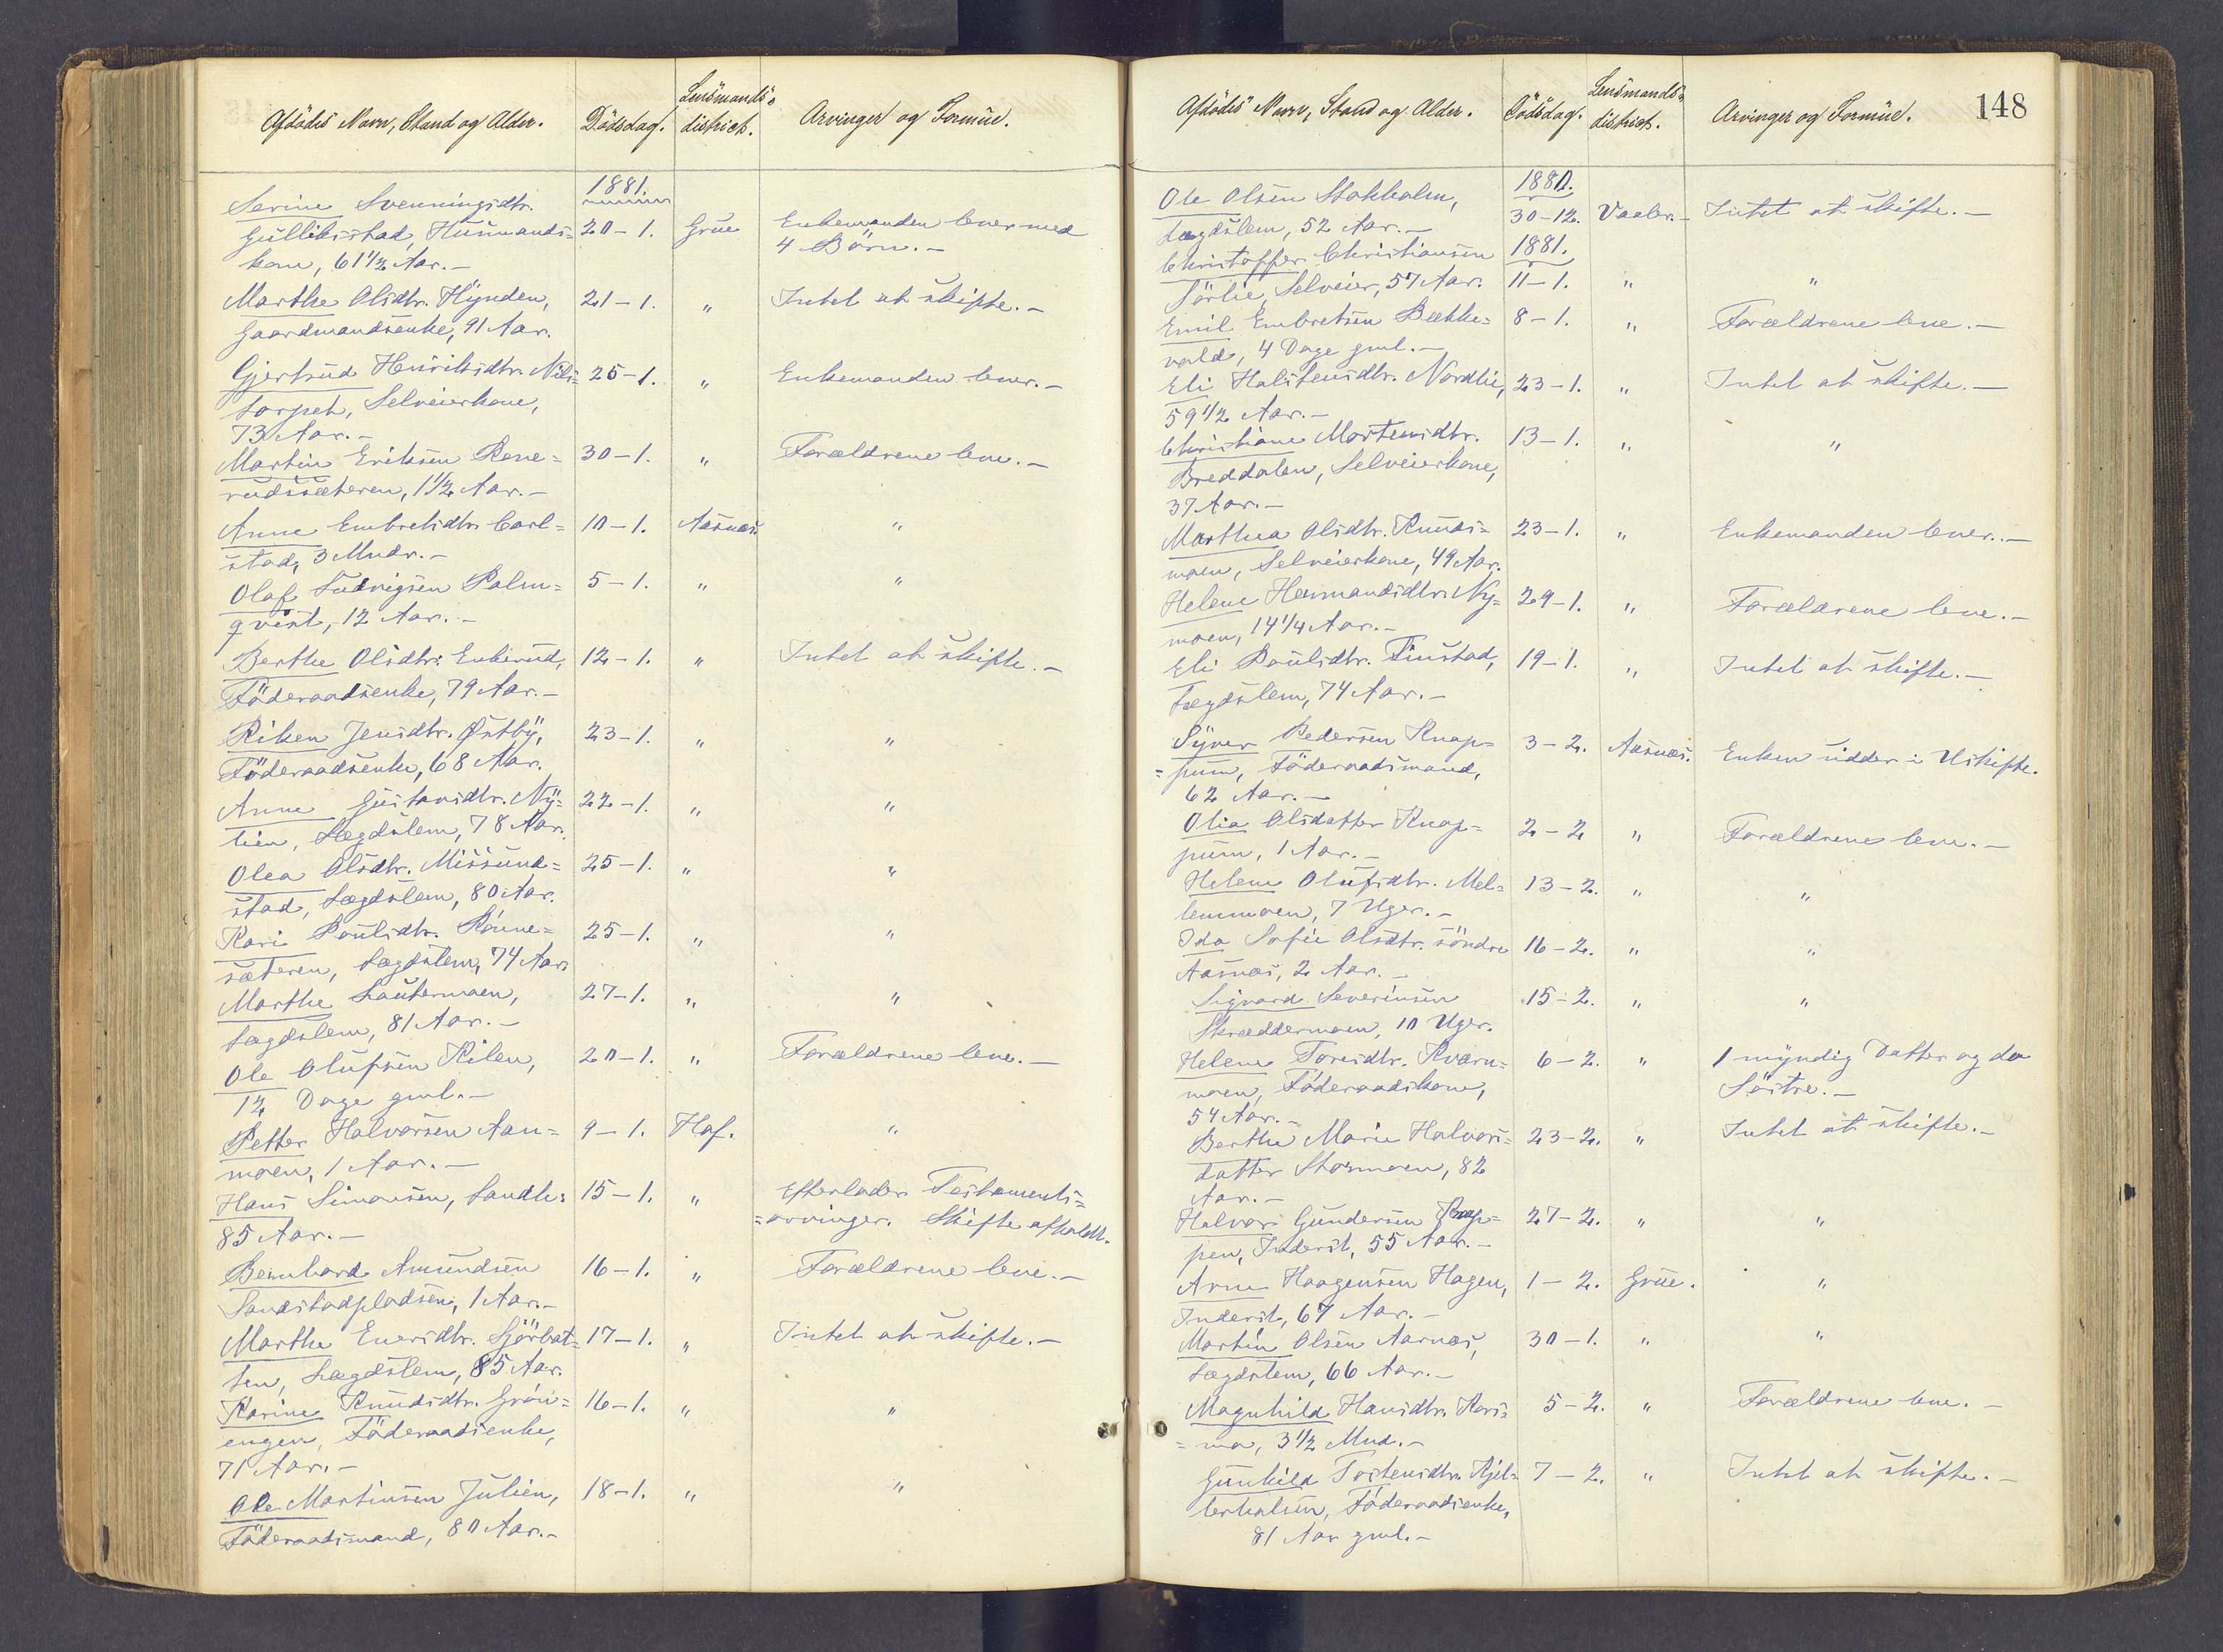 Afdødes Navn, Stand og Alder. Dødsdag. Lensmands-
district. Arvinger og Formue.
1881.
Serine Svenningsdtr.
Gulliksstad, Husmands- 20-1. Grue Enkemanden lever med
kone, 61 1/2 Aar.- 4 Børn.-
Marthe Olsdtr. Hynden, 21-1. " Intet at skifte.-
Gaardmandsenke, 91 Aar.
Gjertrud Henriksdtr. Nils- 25-1. " Enkemanden lever.-
torpet, Selveierkone,
73 Aar.-
Martin Eriksen Rene= 30-1. " Forældrene leve.-
rudssæteren, 1 1/2 Aar.-
Anne Embretsdtr. Carl= 10-1. Aasnæs. "
stad, 3 Mndr.-
Olaf Ludvigsen Palm= 5-1. " "
qvist, 12 Aar.-
Berthe Olsdtr. Enkerud, 12-1. " Intet at skifte.-
Föderaadsenke, 79 Aar.-
Riken Jensdtr. Østby, 23-1. " "
Föderaadsenke, 68 Aar.
Anne Gustavsdtr. Ny= 22-1. " "
lien, Lægdslem, 78 Aar.
Olea Olsdtr. Missund= 25-1. " "
stad, Lægdslem, 80 Aar.
Kari Poulsdtr. Rönne= 25-1. " "
sæteren, Lægdslem, 74 Aar.
Marthe Lautermoen, 27-1. " "
Lægdslem, 81 Aar.-
Ole Olufsen Kilen, 20-1. " Forældrene leve.-
12 Dage gml.-
Petter Halvorsen Aan= 9-1. Hof. "
moen, 1 Aar.-
Hans Simonsen, Sandli: 15-1. " Efterlader Testaments=
85 Aar.- =arvinger. Skifte afholdt.
Bernhard Amundsen 16-1. " Forældrene leve.-
Sandstadpladsen, 1 Aar.-
Marthe Enersdtr. Sjörbot= 17-1. " Intet at skifte.-
ten, Lægdslem, 85 Aar.
Karine Knudsdtr. Grön= 16-1. " "
engen, Föderaadsenke,
71 Aar.-
Ole Martinsen Julien, 18-1. " "
Föderaadsmand, 80 Aar.-
148
Afdødes Navn, Stand og Alder. Dødsdag. Lensmands-
district. Arvinger og Formue.
1880.
Ole Olsen Stokholm, 30-12. Vaaler.- Intet at skifte.-
Lægdslem, 52 Aar.-
1881.
Christoffer Christiansen
Sörlie, Selveier, 57 Aar. 11-1. " "
Emil Embretsen Bække= 8-1. " Forældrene leve.-
vold, 4 Dage gml.-
Eli Halstensdtr. Nordli, 23-1. " Intet at skifte.-
59 1/2 Aar.-
Christiane Mortensdtr. 13-1. " "
Breddalen, Selveierkone,
37 Aar.-
Marthea Olsdtr. Knuds= 23-1. " Enkemanden lever.-
moen, Selveierkone, 49 Aar.
Helene Hermandsdtr. Ny= 29-1. " Forældrene leve.-
moen, 14 1/4 Aar.-
Eli Poulsdtr. Finstad, 19-1. " Intet at skifte.-
Lægdslem, 74 Aar.-
Syver Pedersen Knap= 3-2. Aasnæs. Enken sidder i Uskifte.
=pum, Föderaadsmand,
62 Aar.-
Olia Olsdatter Knap= 2-2 " Forældrene leve.-
pum, 1 Aar.-
Helene Olufsdtr. Mel= 13-2. " "
lemmoen, 7 Uger.-
Ida Sofie Olsdtr. söndre 16-2. " "
Aasnæs, 2 Aar.-
Sigvard Severinsen 15-2. " "
Skræddermoen, 10 Uger.
Helene Toresdtr. Kværn= 6-2. " 1 myndig Datter og do
moen, Föderaadskone, Söstre.-
54 Aar.-
Berthe Marie Halvors= 23-2. " Intet at skifte.-
datter Stormoen, 82
Aar.-
Halvor Gundersen 27-2. " "
pen, Inderst, 55 Aar.-
Arne Haagensen Hagen, 1-2. Grue. "
Inderst, 67 Aar.-
Martin Olsen Aarnæs, 30-1. " "
Lægdslem, 66 Aar.-
Magnhild Hansdtr. Kors= 5-2. " Forældrene leve.-
=mo, 3 1/2 Mnd.-
Gunhild Tostensdtr. Kjel= 7-2. " Intet at skifte.-
lerhalsen, Föderaadsenke,
81 Aar gml.-